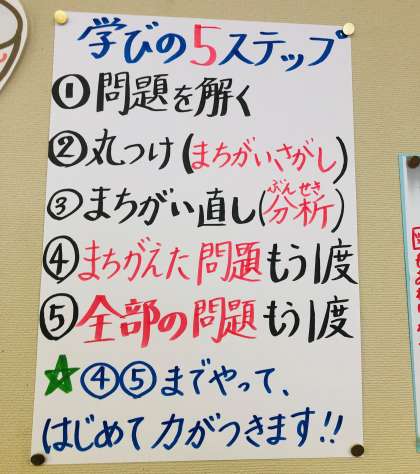 学びの5ステップ
①問題を解く
②丸つけ(まちがいさがし)
③まちがい直し(分析)
ぶんせき
④まちがえた問題もう1度
⑤全部の問題もう1度
☆④⑤までやって、
はじめて力がつきます!!